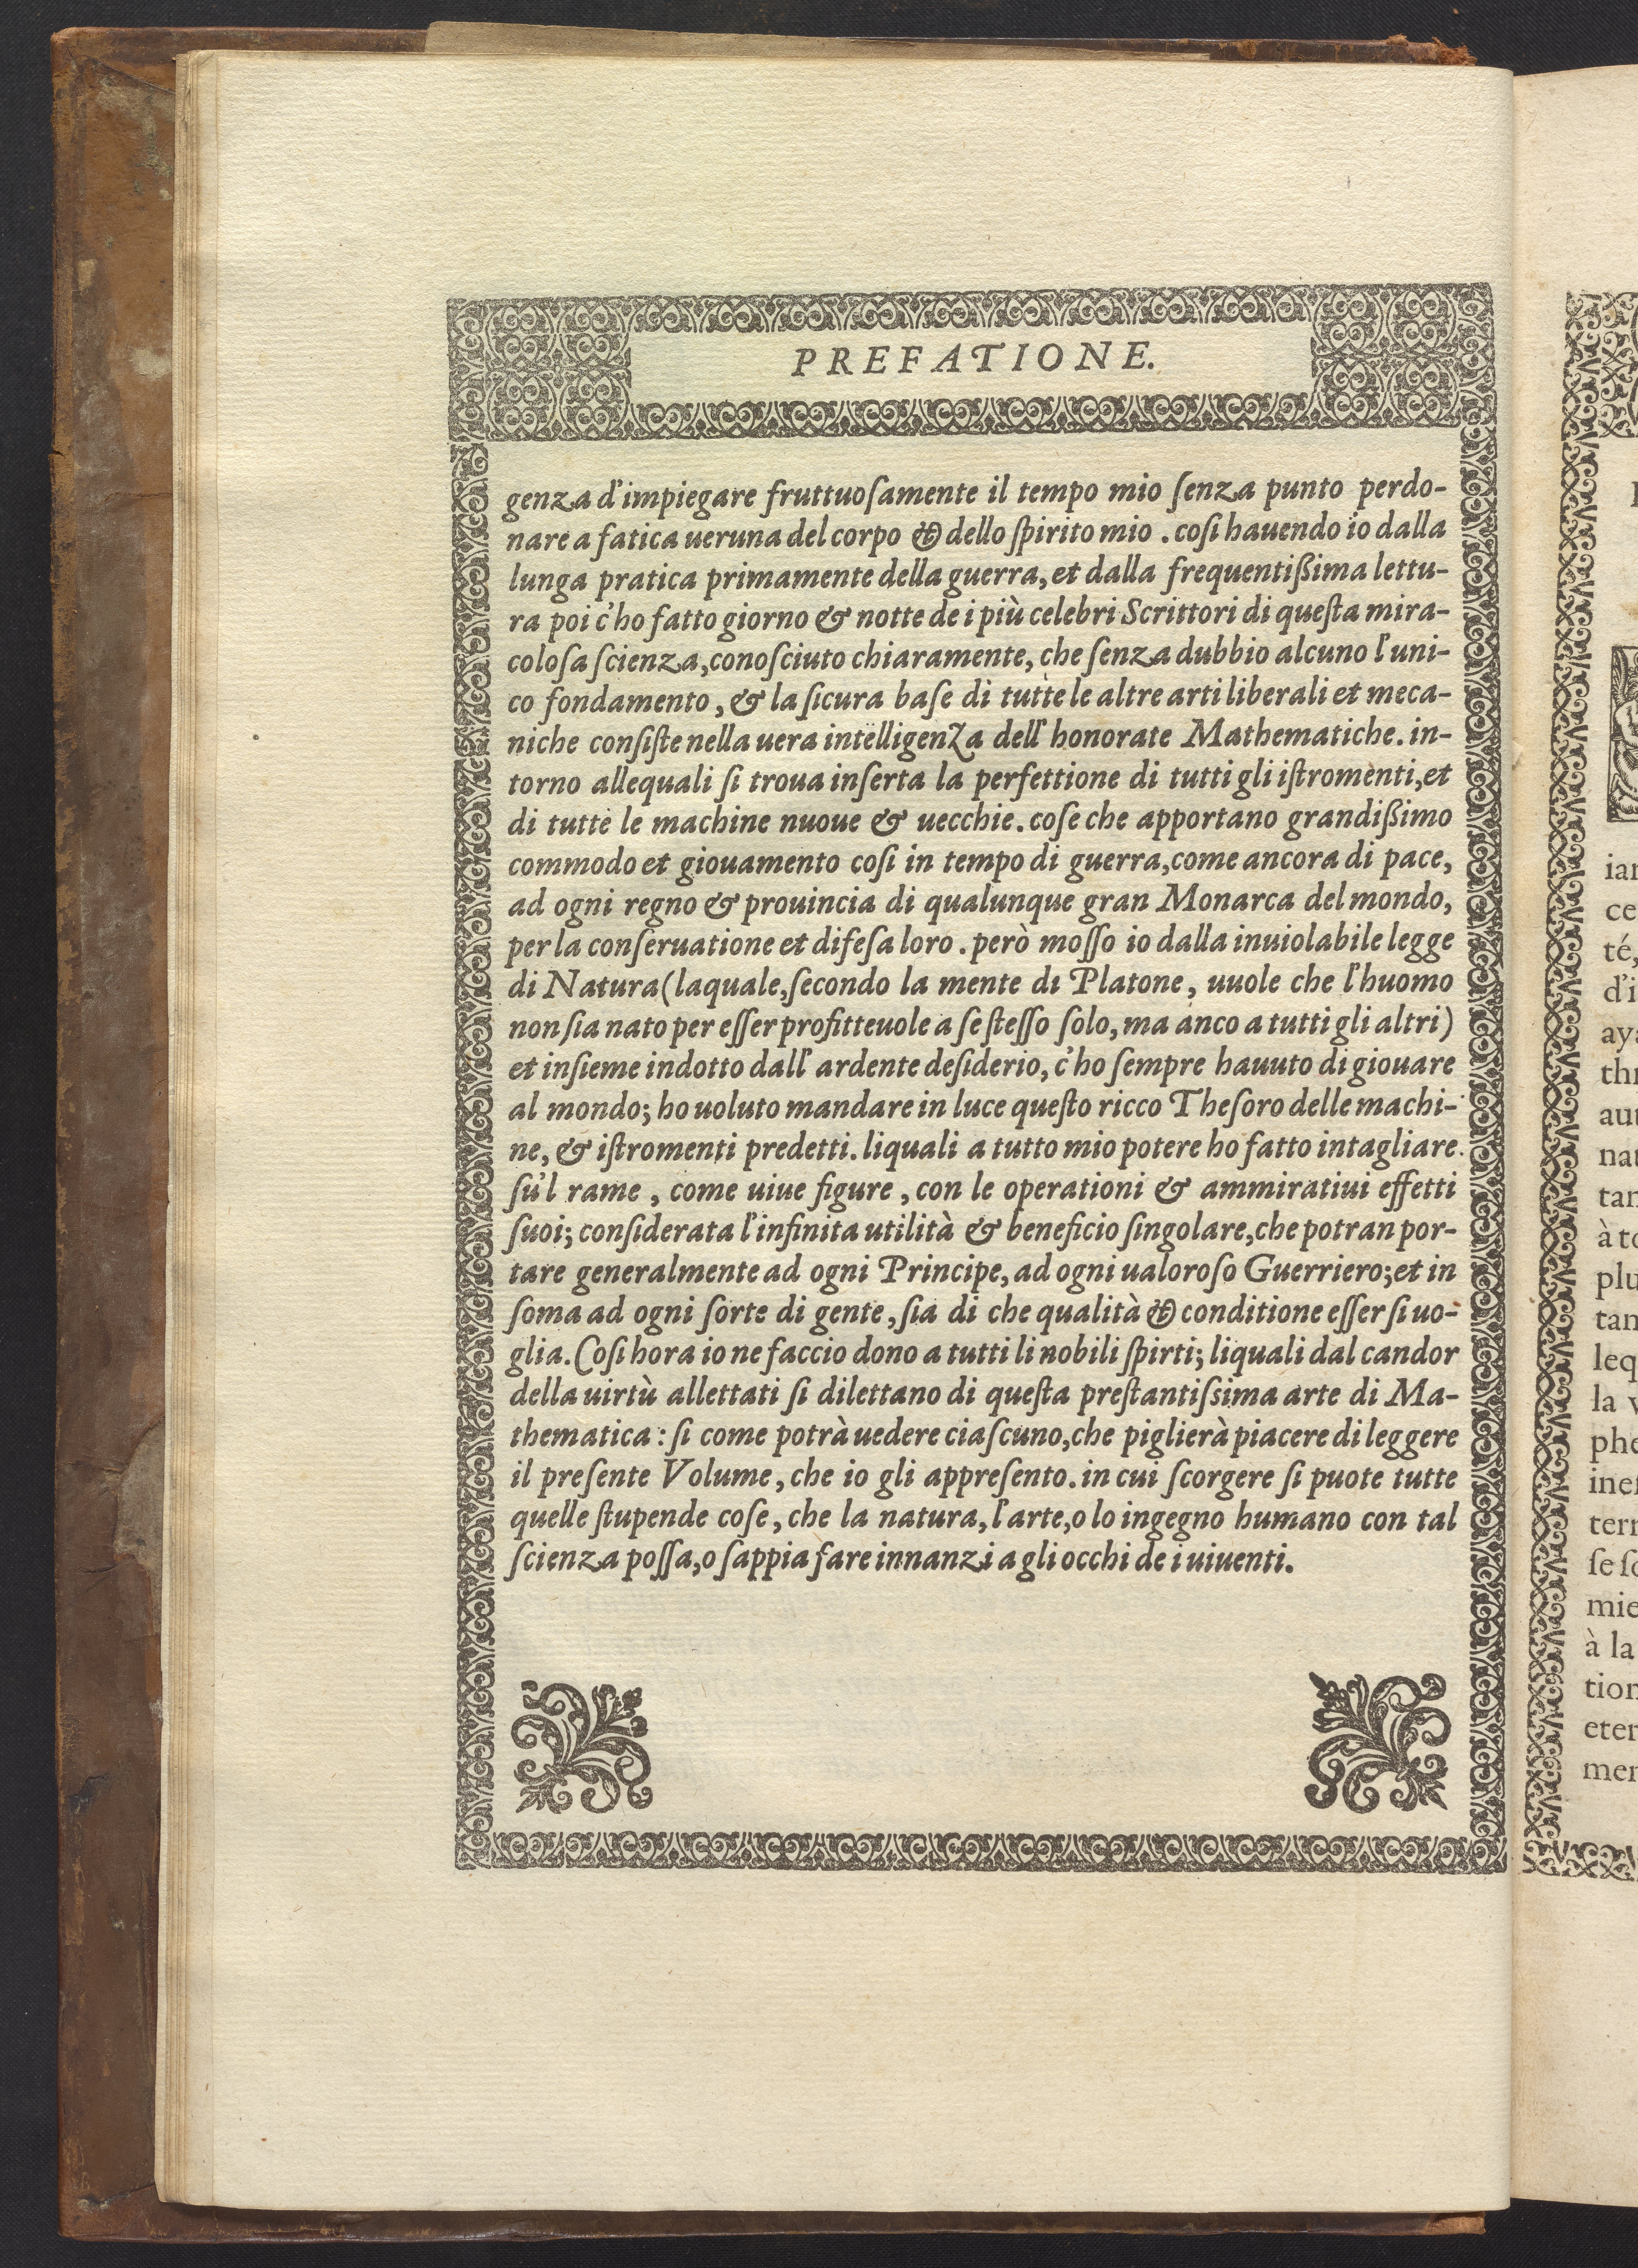 PREFATIONE.
genza d'impiegare fruttuoſamente il tempo mio ſenza punto perdo-
nare a fatica ueruna del corpo & dello ſpirito mio . coſi hauendo io dalla
lunga pratica primamente della guerra, et dalla frequentißima lettu-
ra poi c'ho fatto giorno & notte de i più celebri Scrittori di queſta mira-
coloſa ſcienza, conoſciuto chiaramente, che ſenza dubbio alcuno l'uni-
co fondamento, & la ſicura baſe di tutte le altre arti liberali et meca-
niche conſiſte nella uera intelligenza dell'honorate Mathematiche. in-
torno allequali ſi troua inſerta la perfettione di tutti gli iſtromenti, et
di tutte le machine nuoue & uecchie. coſe che apportano grandißimo
commodo et giouamento coſi in tempo di guerra, come ancora di pace,
ad ogni regno & prouincia di qualunque gran Monarca del mondo,
per la conſeruatione et difeſa loro . però moſſo io dalla inuiolabile legge
di Natura (laquale, ſecondo la mente di Platone, uuole che l'huomo
non ſia nato per eſſer profitteuole a ſe ſteſſo ſolo, ma anco a tutti gli altri)
et inſieme indotto dall'ardente deſiderio, c'ho ſempre hauuto di giouare
al mondo; ho uoluto mandare in luce queſto ricco Theſoro delle machi-
ne, & iſtromenti predetti. liquali a tutto mio potere ho fatto intagliare
ſu'l rame, come uiue figure, con le operationi & ammiratiui effetti
ſuoi; conſiderata l'infinita utilità & beneficio ſingolare, che potran por-
tare generalmente ad ogni Principe, ad ogni ualoroſo Guerriero; et in
ſoma ad ogni ſorte di gente, ſia di che qualità & conditione eſſer ſi uo-
glia. Coſi hora io ne faccio dono a tutti li nobili ſpirti; liquali dal candor
della uirtù allettati ſi dilettano di queſta preſtantiſsima arte di Ma-
thematica: ſi come potrà uedere ciaſcuno, che piglierà piacere di leggere
il preſente Volume, che io gli appreſento. in cui ſcorgere ſi puote tutte
quelle ſtupende coſe, che la natura, l'arte, o lo ingegno humano con tal
ſcienza poſſa, o ſappia fare innanzi a gli occhi de i uiuenti.
ce
té,
d'i
leq
la v
ſe ſo
à la